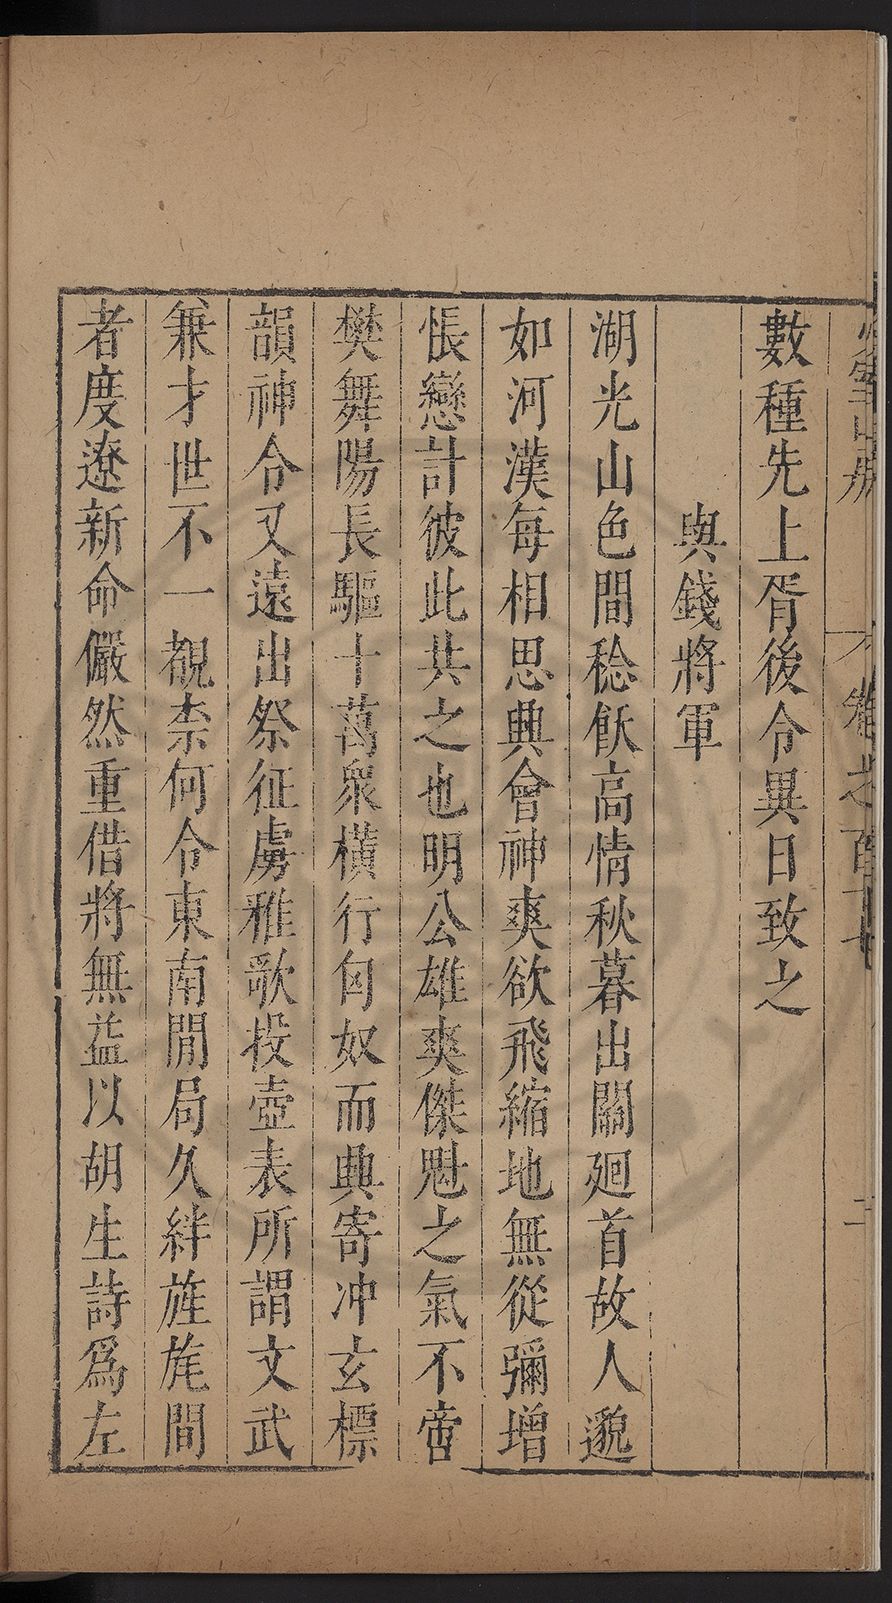 少室山房
卷之百十七
二
數種先上胥後令異日致之
與錢將軍
湖光山色間稔飫高情秋暮出關廻首故人邈
如河漢每相思興會神爽欲飛縮地無從彌增
悵戀計彼此共之也明公雄爽傑魁之氣不啻
樊舞陽長驅十萬衆橫行匈奴而興寄冲玄標
韻神令又遠出祭征虜雅歌投壺表所謂文武
兼才世不一覩柰何令東南閒局久絆旌旄間
者度遼新命儼然重借將無益以胡生詩爲左